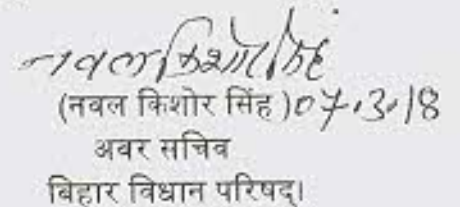 नवल किशोर सिंह
(नवल किशोर सिंह)07.3.18
अवर सचिव
बिहार विधान परिषद्।